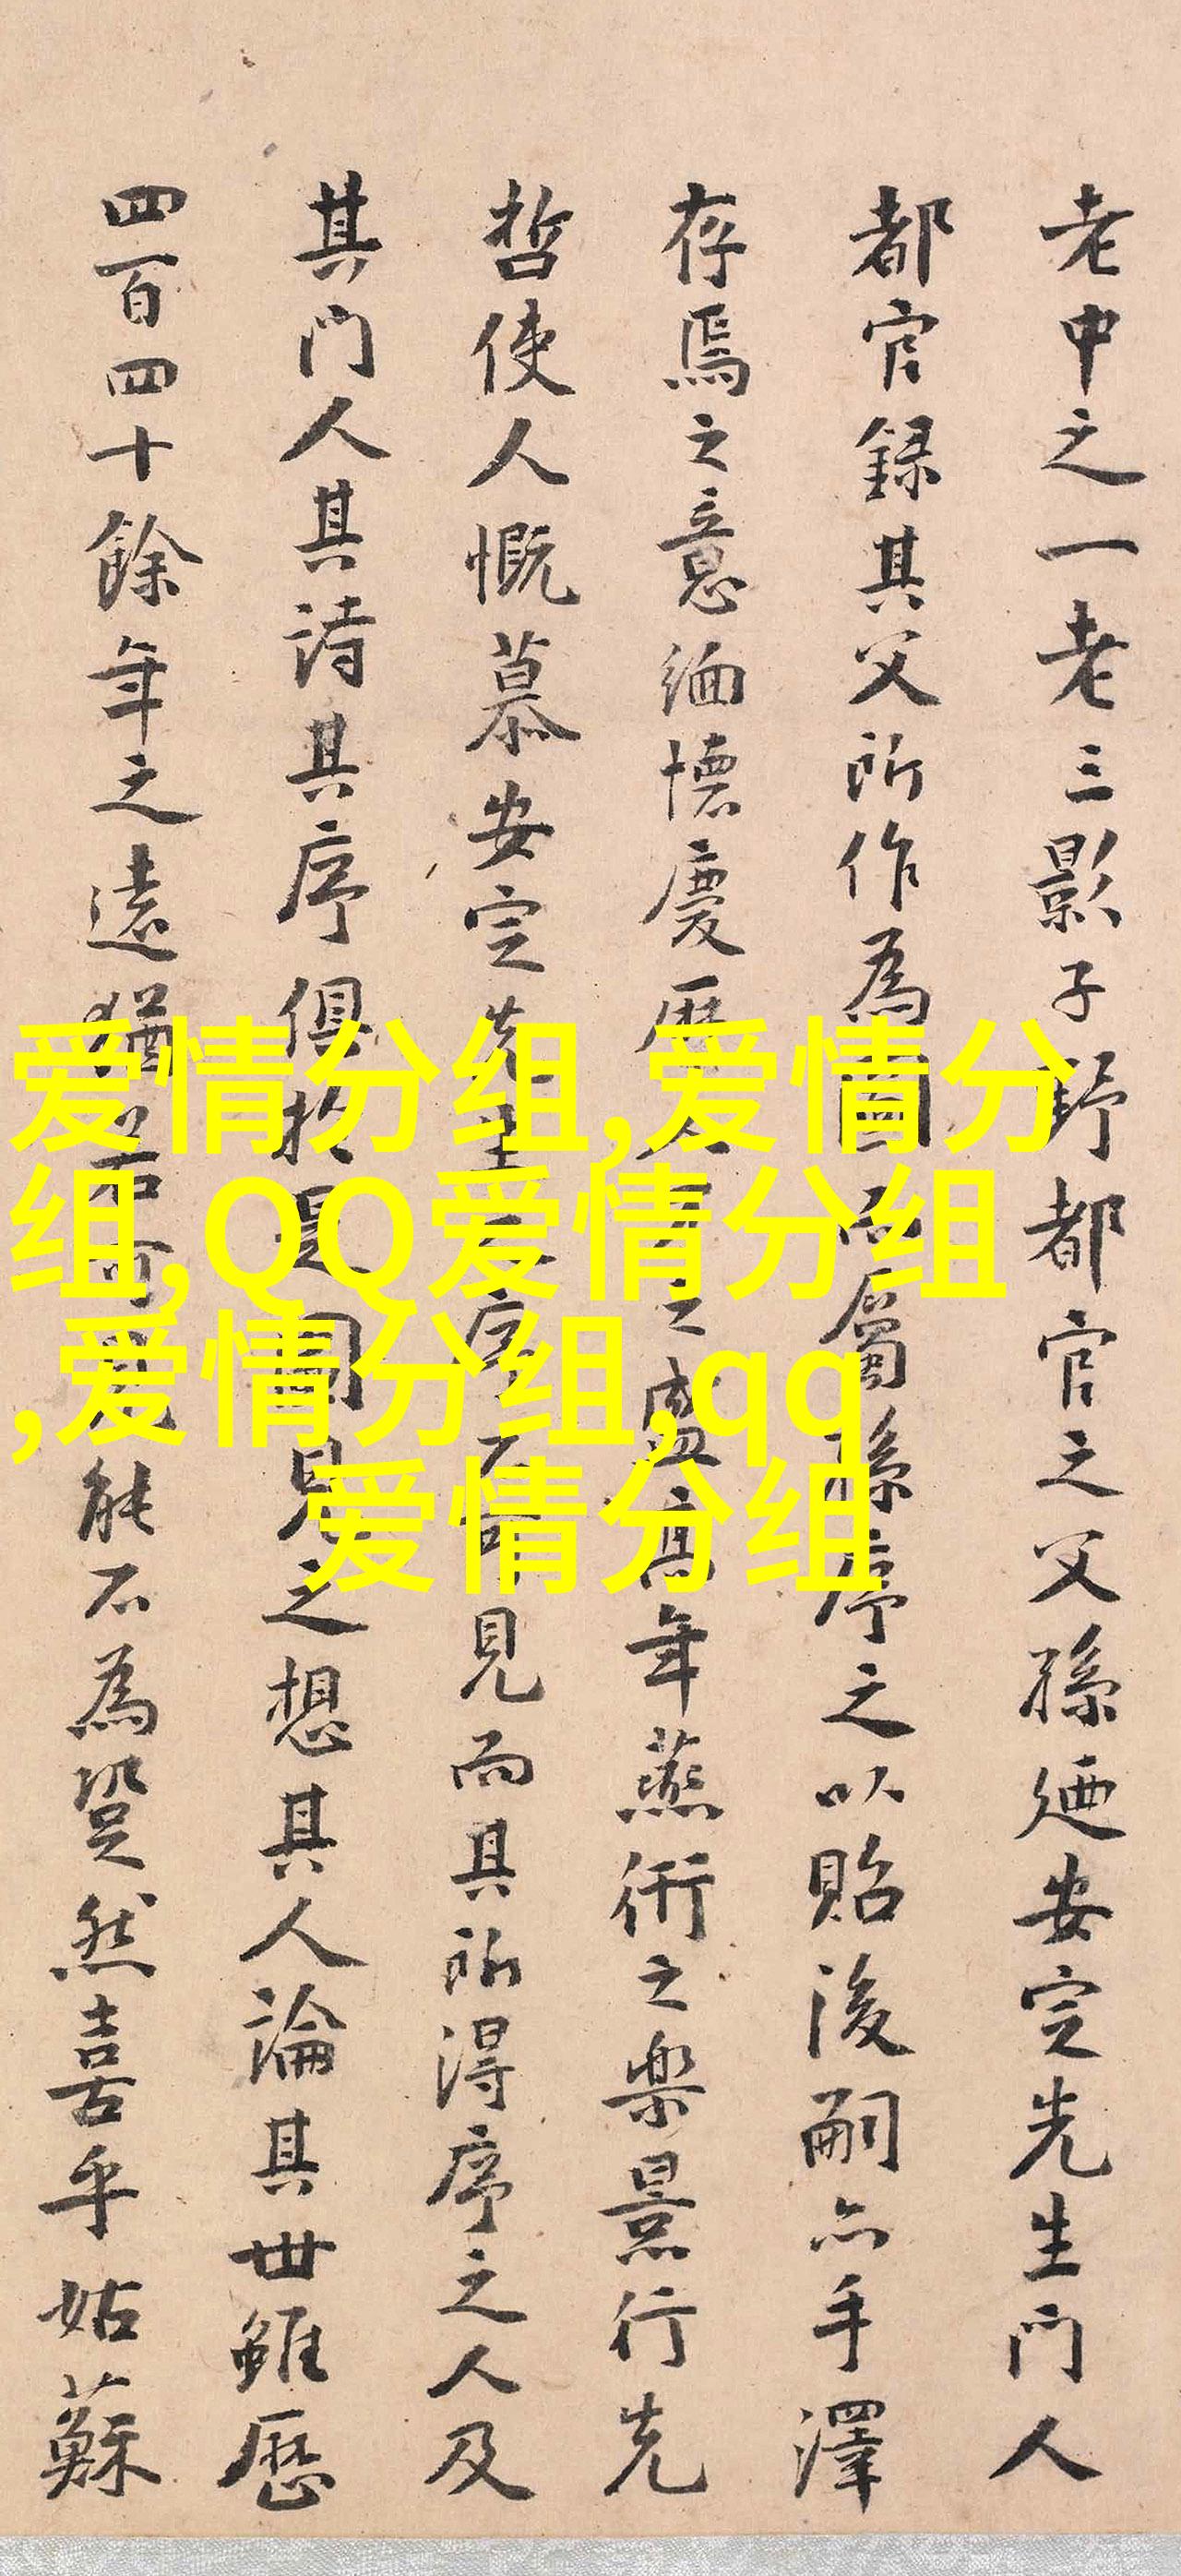 老中之一老三影子野都官之父孫廼安定先生門人
都官録其父所作為圖而屬孫序之以貽後嗣亦手澤
存焉之意緬懷慶曆 之盛高年燕衎之樂景行先
哲使人慨慕安定先生 序 見而其所得序之人及
其門人其詩其序俱於是圖見之想其人論其世雖歷
四百四十餘年之遠猶若可 能不為跫然喜乎姑蘇
爱情分组,爱情分
组,QQ爱情分组
,爱情分组,qq
爱情分组